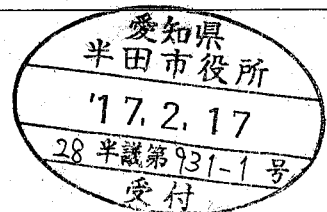 愛知県
半田市役所
'17.2.17
28半議第931-1号
受付